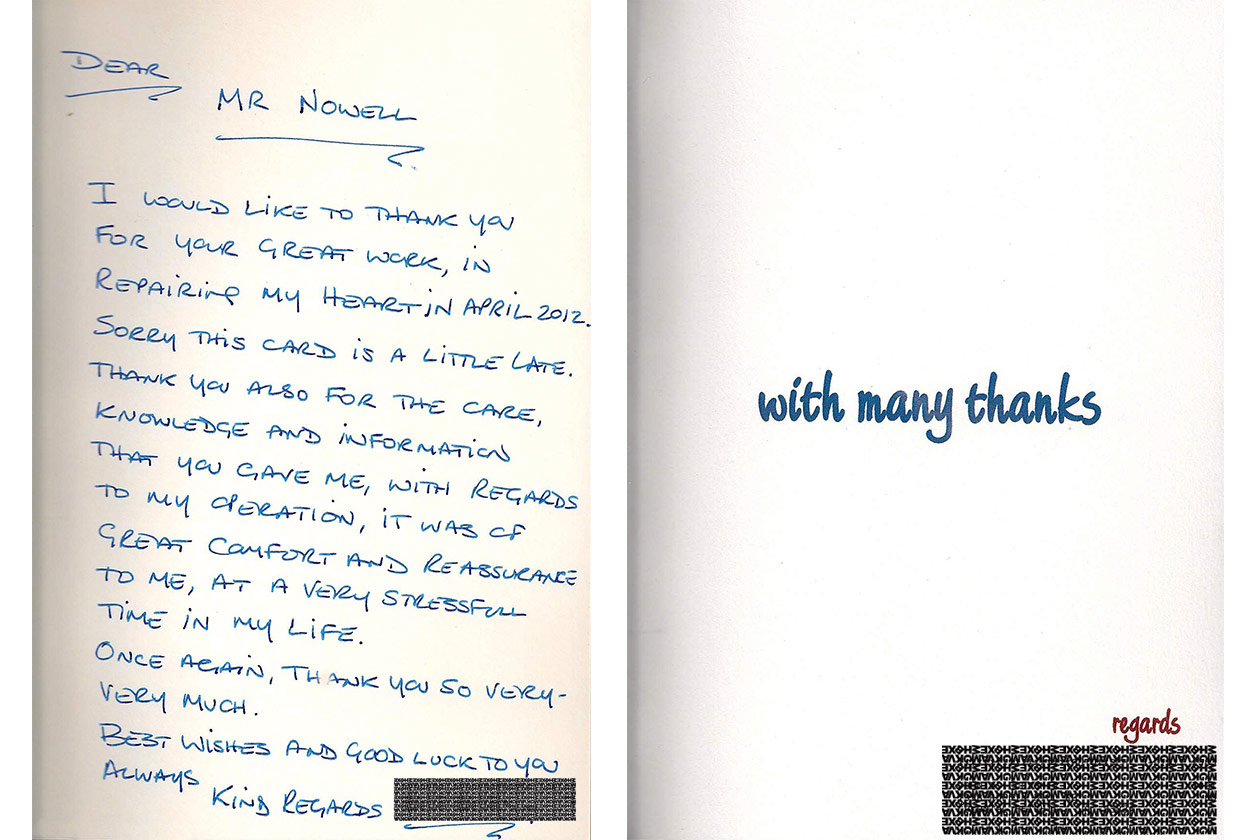 DEAR
MR NOWELL
I WOULD LIKE TO THANK YOU
FOR YOUR GREAT WORK, IN
REPAIRING MY HEART IN APRIL 2012.
SORRY THIS CARD IS A LITTLE LATE.
THANK YOU ALSO FOR THE CARE,
KNOWLEDGE AND INFORMATION
THAT YOU GAVE ME, WITH REGARDS
TO MY OPERATION, IT WAS OF
GREAT COMFORT AND REASSURANCE
TO ME, AT A VERY STRESSFULL
TIME IN MY LIFE.
ONCE AGAIN, THANK YOU SO VERY-
VERY MUCH.
BEST WISHES AND GOOD LUCK TO YOU
ALWAYS
KIND REGARDS
with many thanks
regards